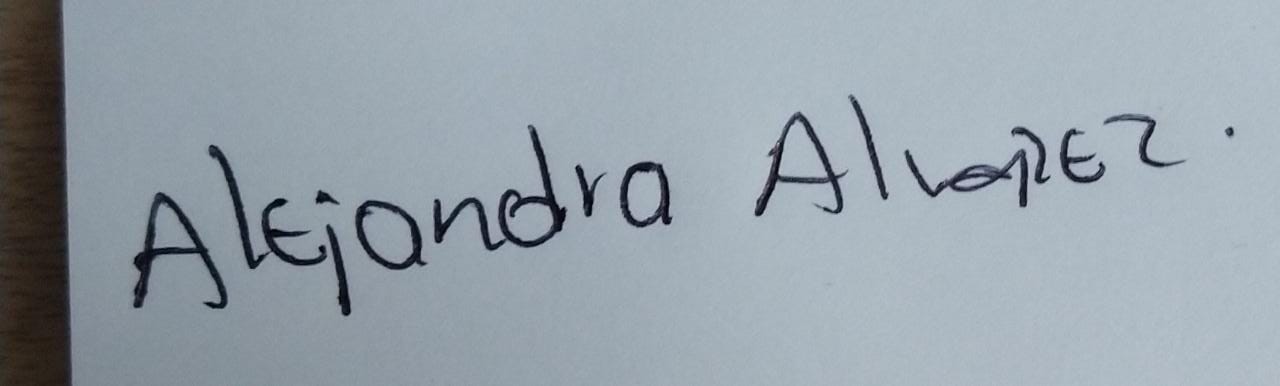 Alejandra Alvarez.